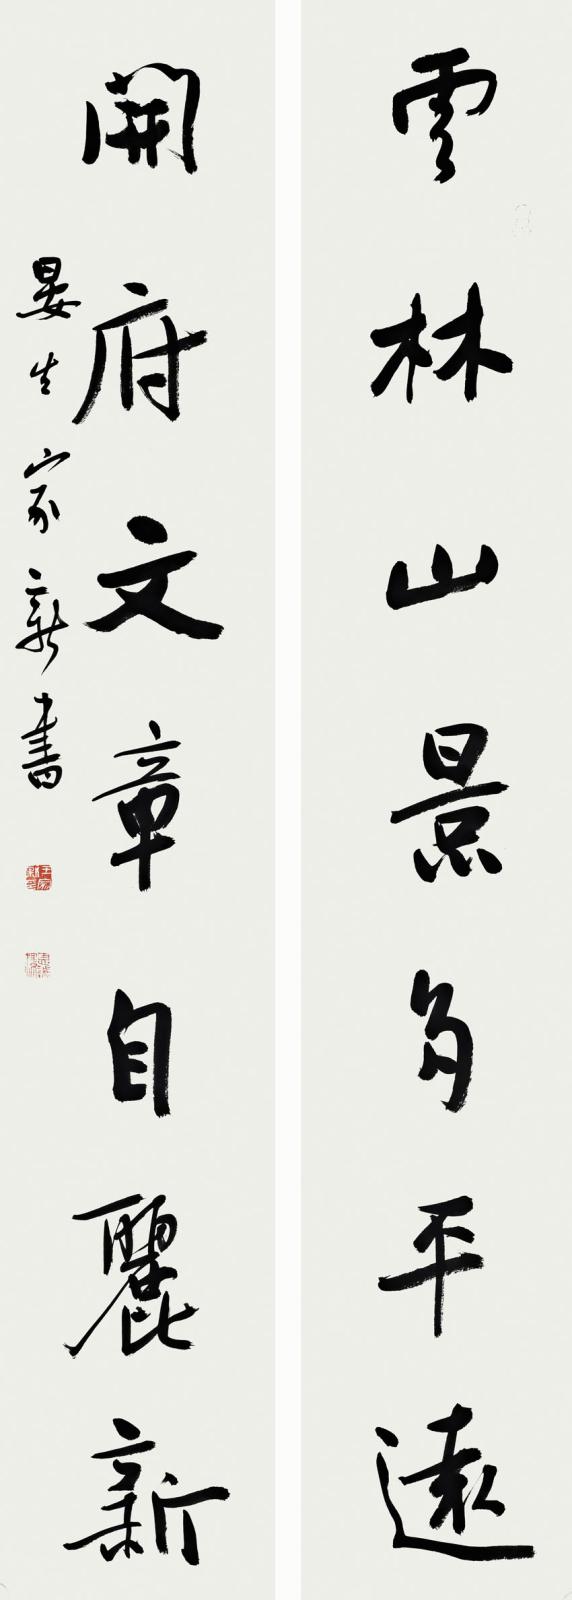 雲林山景多平遠
開府文章自麗新
晏生家新書